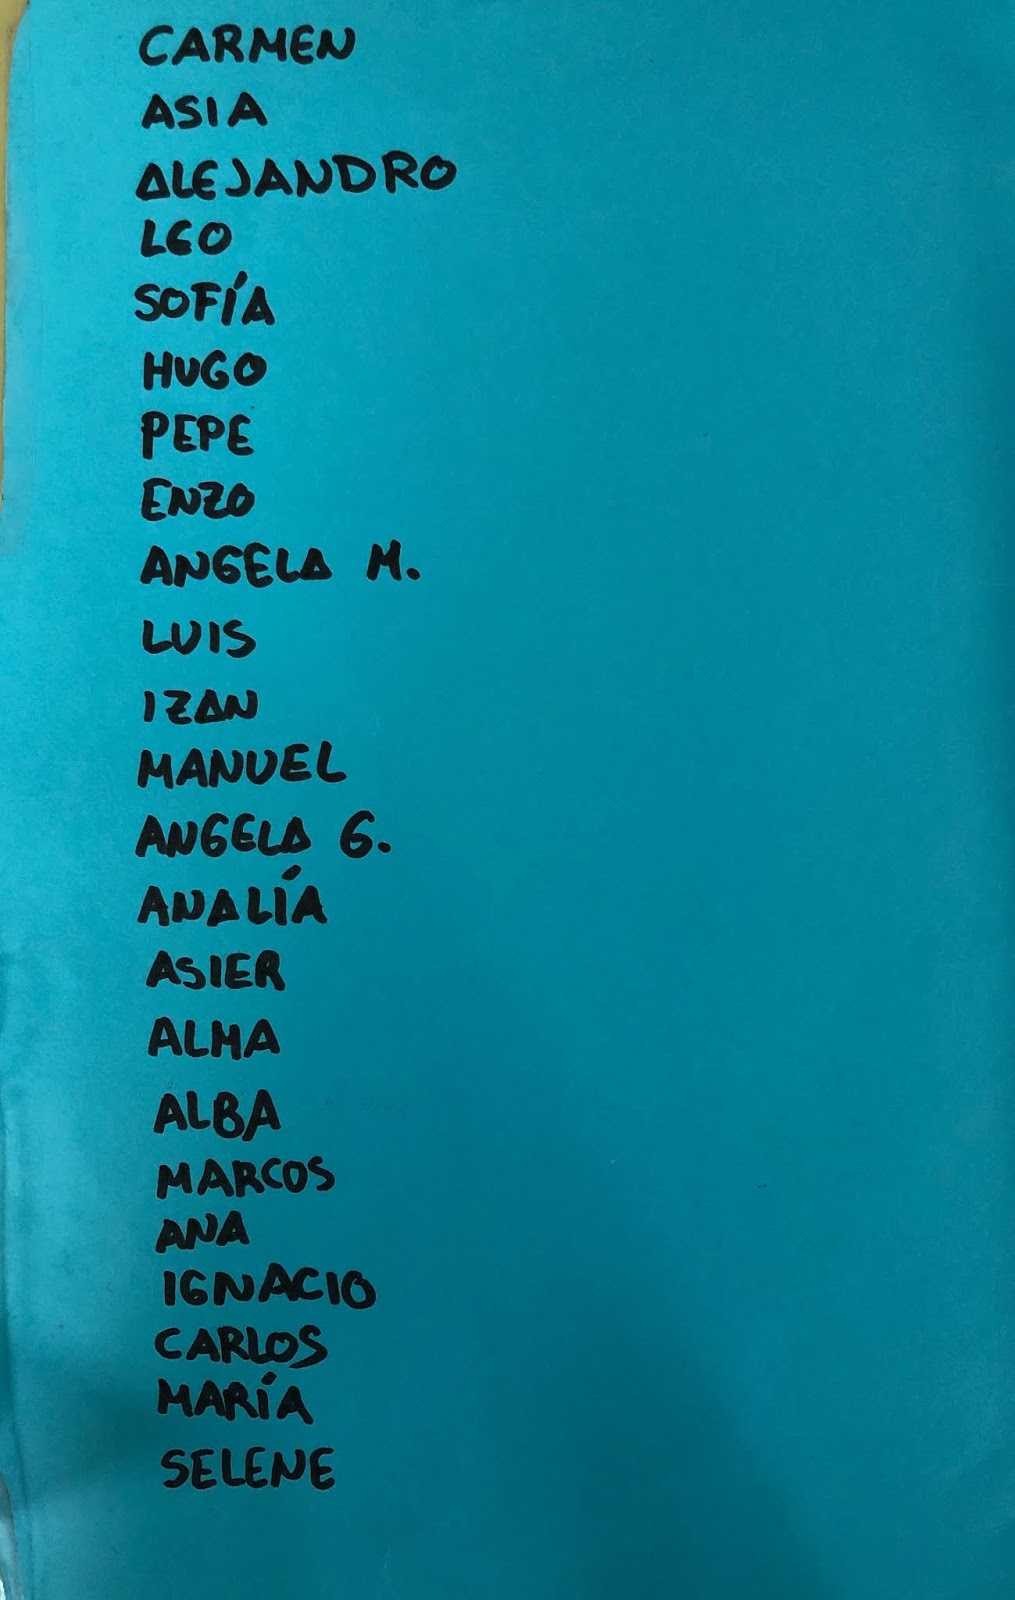 CARMEN
ASIA
ALEJANDRO
LEO
SOFÍA
HUGO
PEPE
ENZO
ANGELA M.
LUIS
IZAN
MANUEL
ANGELA G.
ANALÍA
ASIER
ALMA
ALBA
MARCOS
ANA
IGNACIO
CARLOS
MARÍA
SELENE